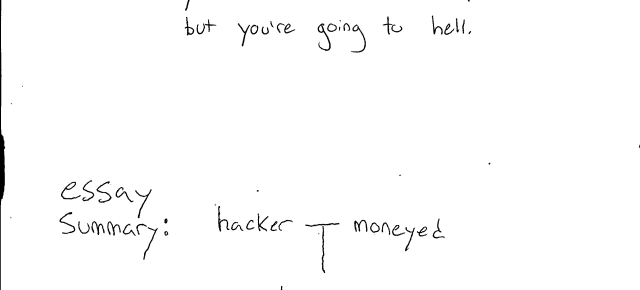 but you're going to hell.
essay
Summary: hacker moneyed